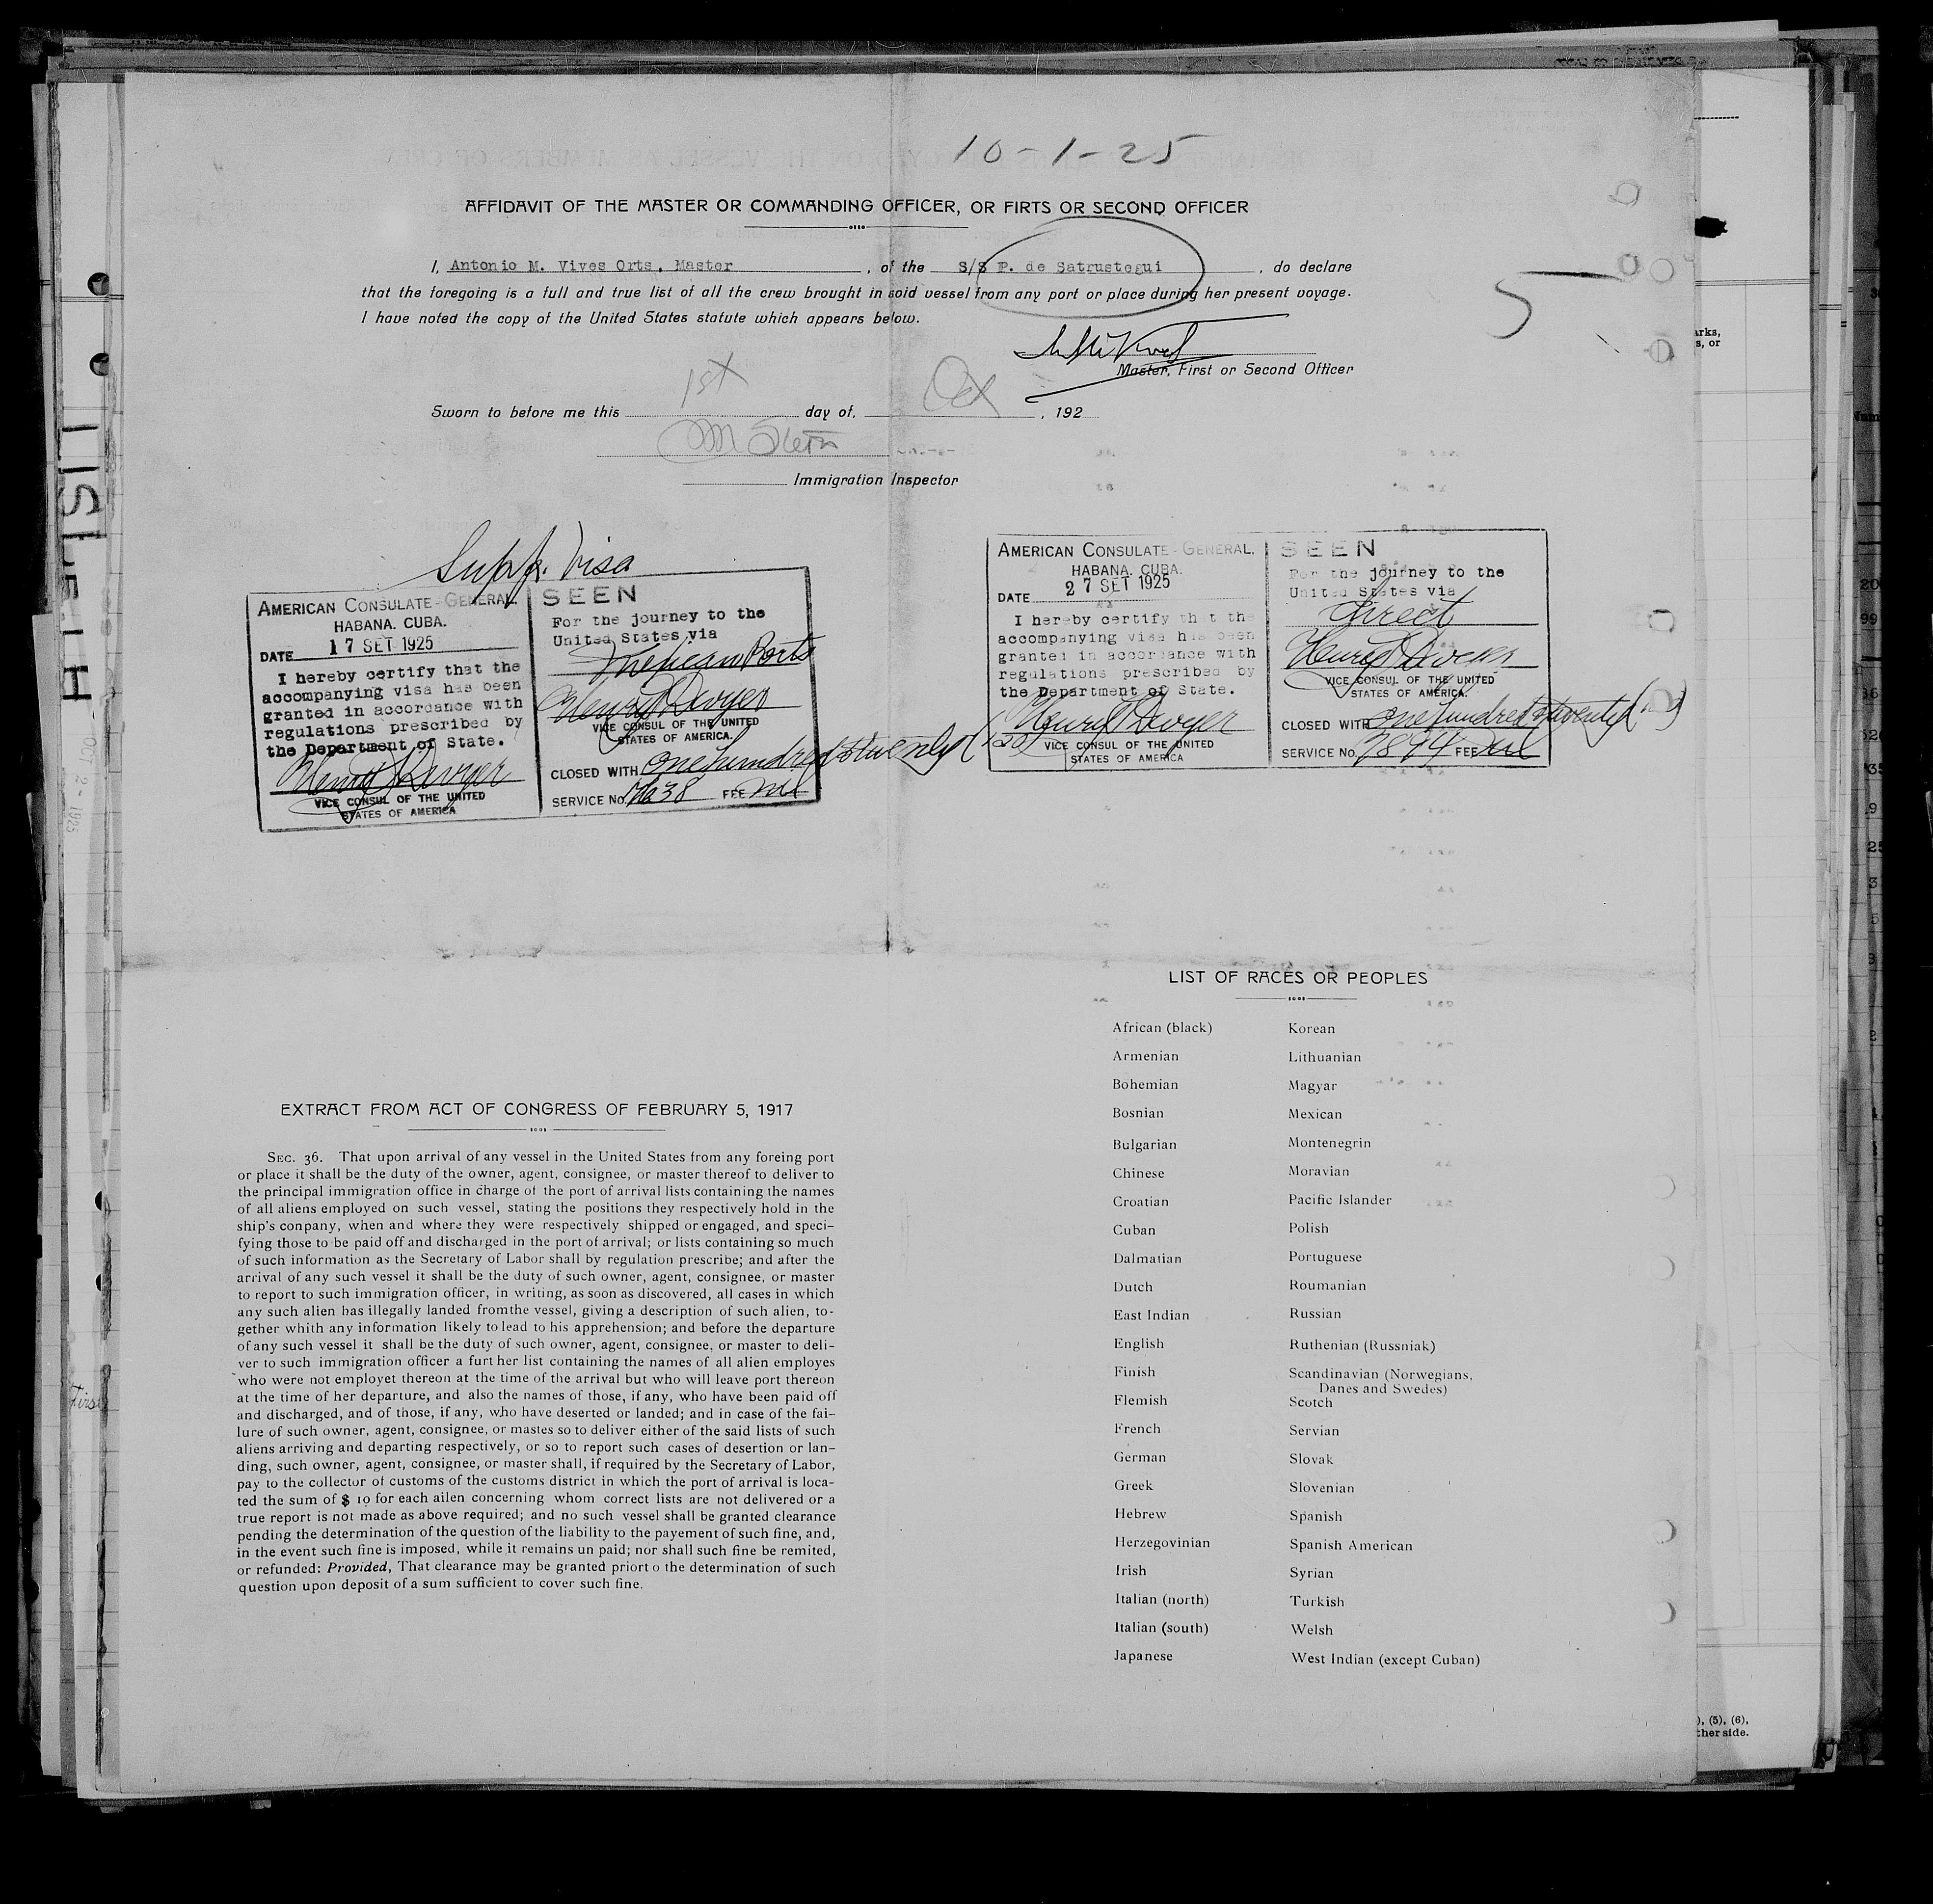 10-1-25
AFFIDAVIT OF THE MASTER OR COMMANDING OFFICER, OR FIRTS OR SECOND OFFICER
I, Antonio M. Vives Orts, Master, of the S/S P. de Satrustegui, do declare
that the foregoing is a full and true list of all the crew brought in said vessel from any port or place during her present voyage.
I have noted the copy of the United States statute which appears below.
5
Master, First or Second Officer
Sworn to before me this 1st day of, Oct, 192
M Stern
Immigration Inspector
Supp. Visa
AMERICAN CONSULATE-GENERAL.
HABANA. CUBA.
DATE 17 SET 1925
I hereby certify that the
accompanying visa has been
granted in accordance with
regulations prescribed by
the Department of State.
Henry Dwyer
VICE CONSUL OF THE UNITED
STATES OF AMERICA
SEEN
For the journey to the
United States via
Mexican Ports
Henry Dwyer
VICE CONSUL OF THE UNITED
STATES OF AMERICA.
CLOSED WITH One hundred & twenty (120)
SERVICE No. FEE nil
AMERICAN CONSULATE-GENERAL.
HABANA. CUBA.
DATE 27 SET 1925
I hereby certify that the
accompanying visa has been
granted in accordance with
regulations prescribed by
the Department of State.
Henry Dwyer
VICE CONSUL OF THE UNITED
STATES OF AMERICA
SEEN
For the journey to the
United States via
direct
Henry Dwyer
VICE CONSUL OF THE UNITED
STATES OF AMERICA.
CLOSED WITH One hundred & twenty
SERVICE No. 3894 FEE nil
EXTRACT FROM ACT OF CONGRESS OF FEBRUARY 5, 1917
SEC. 36. That upon arrival of any vessel in the United States from any foreing port
or place it shall be the duty of the owner, agent, consignee, or master thereof to deliver to
the principal immigration office in charge of the port of arrival lists containing the names
of all aliens employed on such vessel, stating the positions they respectively hold in the
ship's conpany, when and where they were respectively shipped or engaged, and speci-
fying those to be paid off and discharged in the port of arrival; or lists containing so much
of such information as the Secretary of Labor shall by regulation prescribe; and after the
arrival of any such vessel it shall be the duty of such owner, agent, consignee, or master
to report to such immigration officer, in writing, as soon as discovered, all cases in which
any such alien has illegally landed fromthe vessel, giving a description of such alien, to-
gether whith any information likely to lead to his apprehension; and before the departure
of any such vessel it shall be the duty of such owner, agent, consignee, or master to deli-
ver to such immigration officer a furt her list containing the names of all alien employes
who were not employet thereon at the time of the arrival but who will leave port thereon
at the time of her departure, and also the names of those, if any, who have been paid off
and discharged, and of those, if any, who have deserted or landed; and in case of the fai-
lure of such owner, agent, consignee, or mastes so to deliver either of the said lists of such
aliens arriving and departing respectively, or so to report such cases of desertion or lan-
ding, such owner, agent, consignee, or master shall, if required by the Secretary of Labor,
pay to the collector of customs of the customs district in which the port of arrival is loca-
ted the sum of $ 10 for each ailen concerning whom correct lists are not delivered or a
true report is not made as above required; and no such vessel shall be granted clearance
pending the determination of the question of the liability to the payement of such fine, and,
in the event such fine is imposed, while it remains un paid; nor shall such fine be remited,
or refunded: Provided, That clearance may be granted priort o the determination of such
question upon deposit of a sum sufficient to cover such fine.
LIST OF RACES OR PEOPLES
African (black)
Armenian
Bohemian
Bosnian
Bulgarian
Chinese
Croatian
Cuban
Dalmatian
Dutch
East Indian
English
Finish
Flemish
French
German
Greek
Hebrew
Herzegovinian
Irish
Italian (north)
Italian (south)
Japanese
Korean
Lithuanian
Magyar
Mexican
Montenegrin
Moravian
Pacific Islander
Polish
Portuguese
Roumanian
Russian
Ruthenian (Russniak)
Scandinavian (Norwegians,
Danes and Swedes)
Scotch
Servian
Slovak
Slovenian
Spanish
Spanish American
Syrian
Turkish
Welsh
West Indian (except Cuban)
OCT 2 - 1925
arks,
s, or
), (5), (6),
ther side.